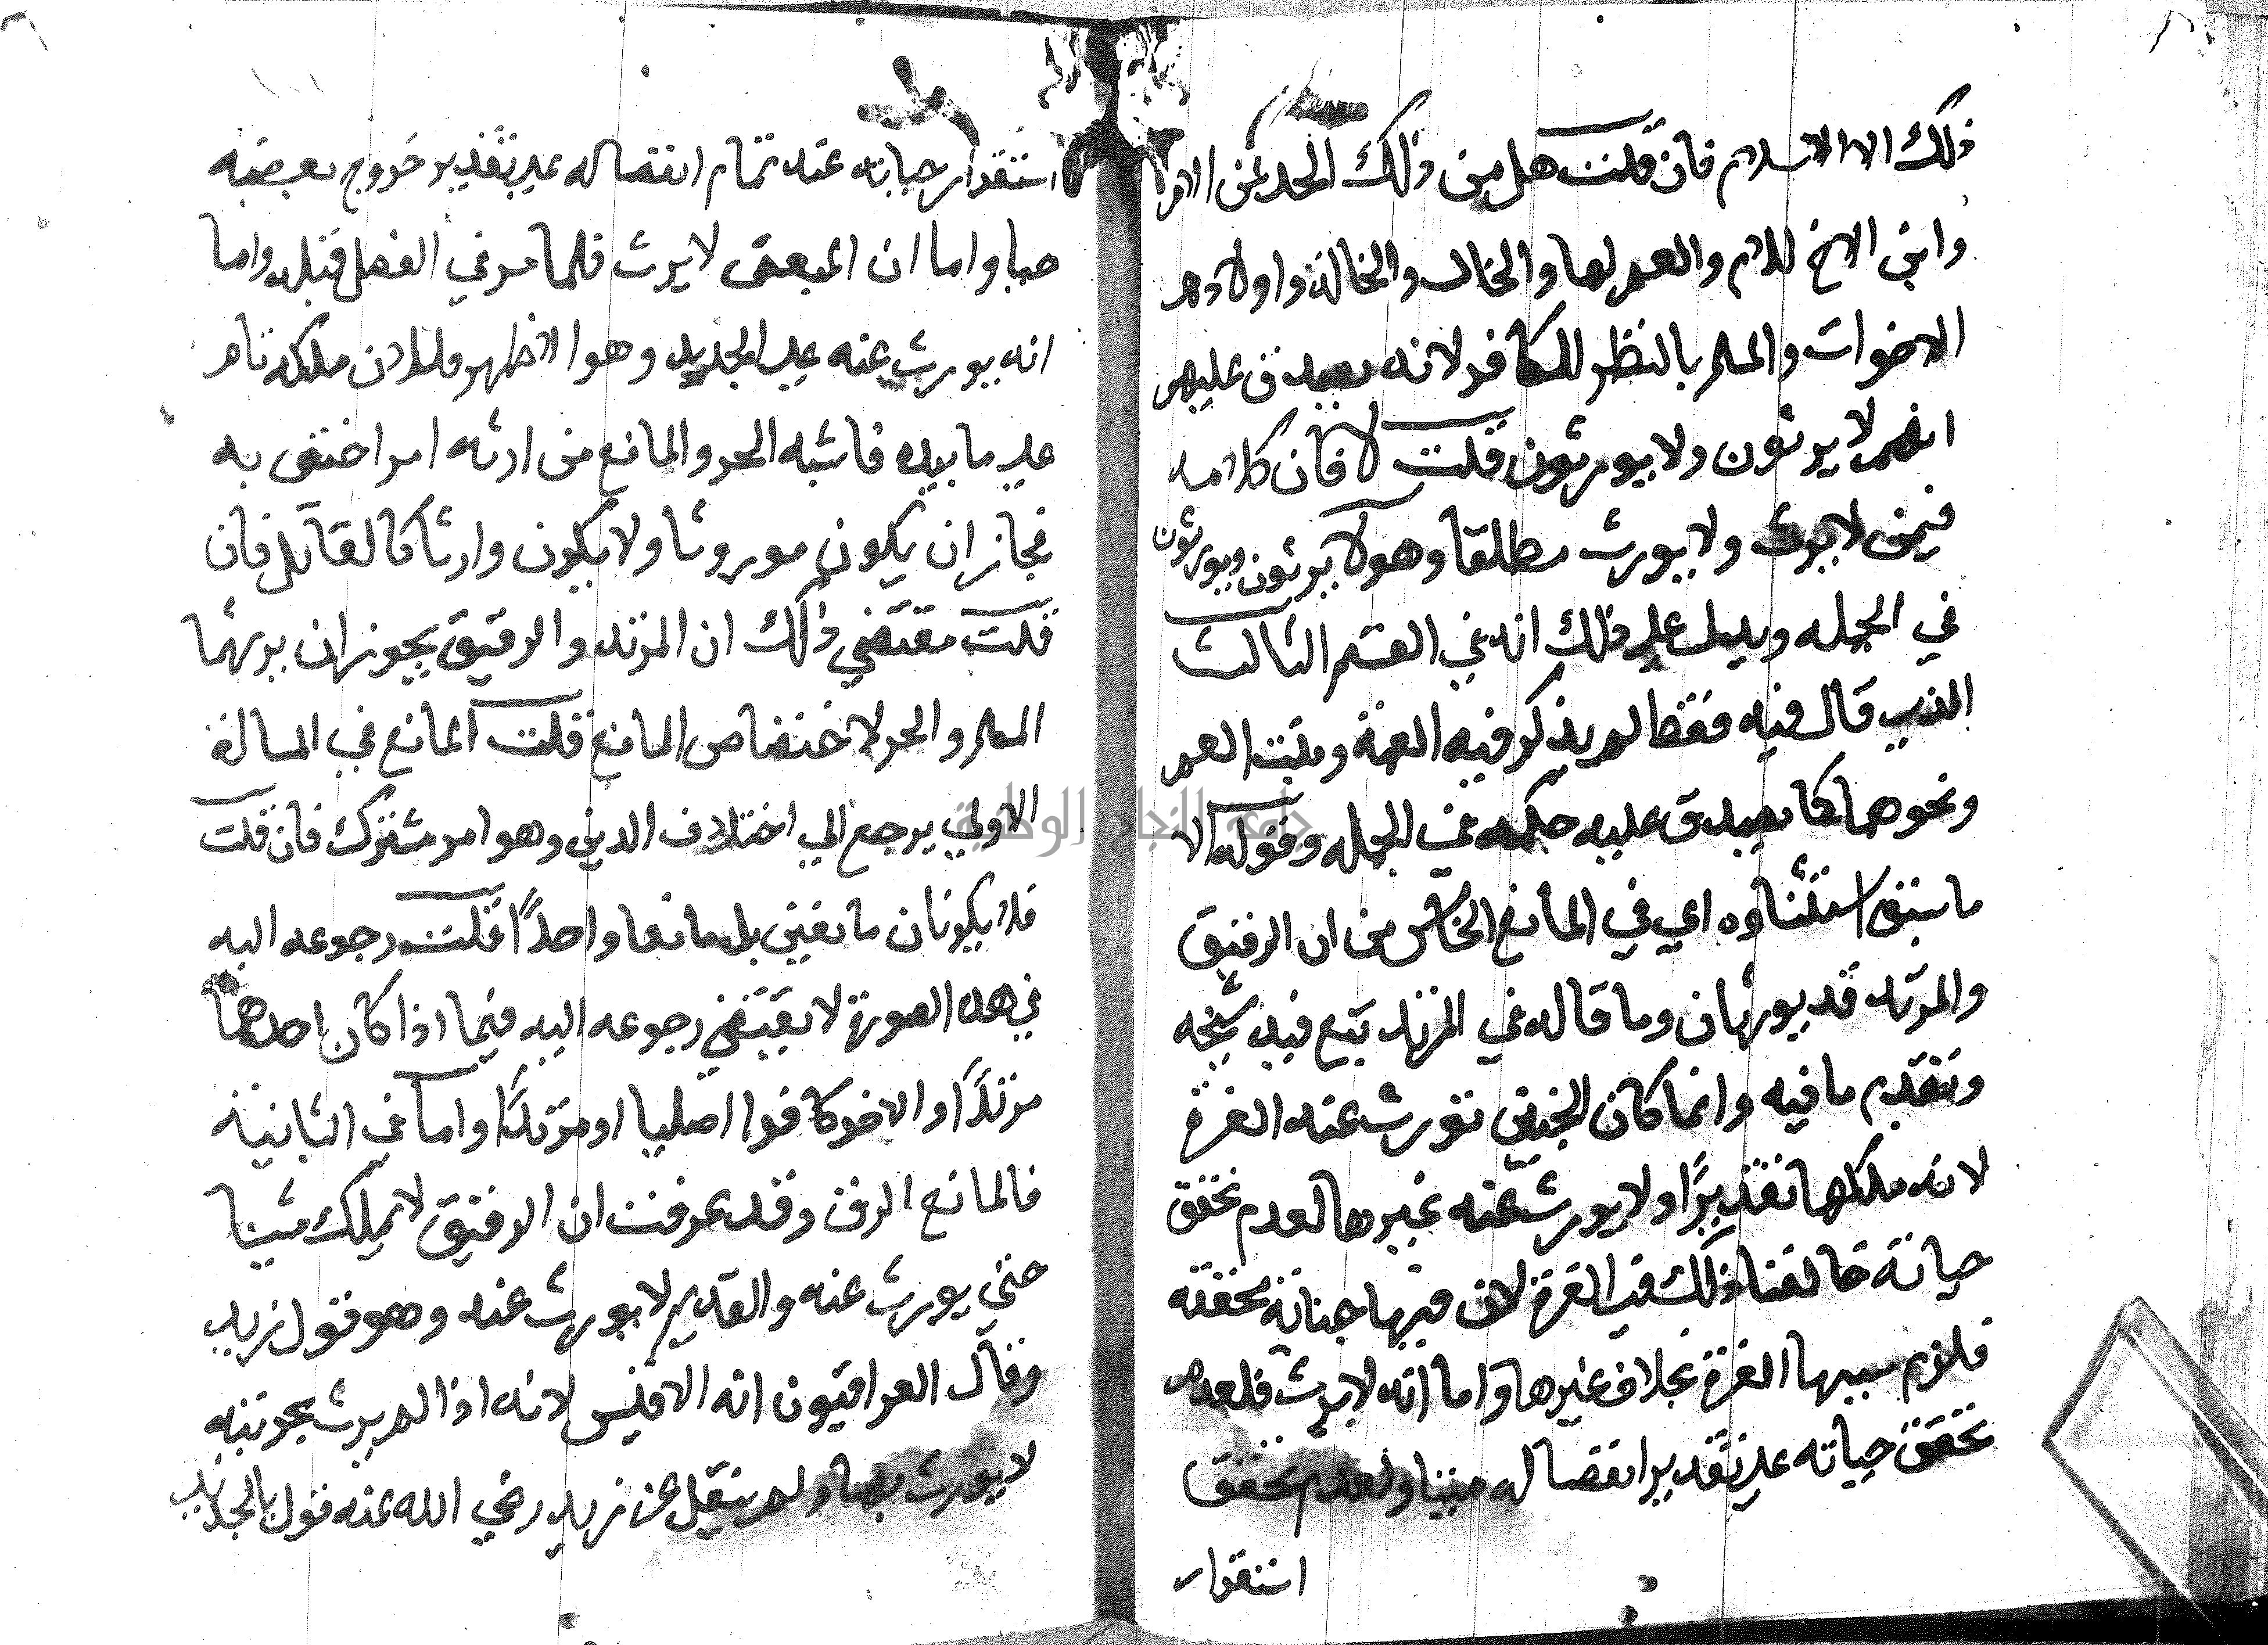 ذلك الا الاسلام فان قلت هل من ذلك الجد من الام
وابن الاخ للام والعم لها والخال والخالة واولادهم
الاخوات والمسلم بالنظر للكافر لانه يصدق عليهم
انهم لا يرثون ولا يورثون قلت لا فان كلامه
فيمن لا يرث ولا يورث مطلقا وهولا يرثون ويورثون
في الجمله ويدل على ذلك انه في القسم الثالث
الذي قال فيه فقط لم يذكر فيه العمة وبنت العم
ونحوهما كما يصدق عليه حكمه في الجمله وقوله الا
ما سبق استثناوه اي في المانع الخامس من ان الرقيق
والمرتد قد يورثان وما قاله في المرتد تبع فيه شيخه
وتقدم ما فيه وانما كان الجنين تورث عنه الغرة
لانه ملكها تقديرًا ولا يورث عنه غيرها لعدم تحقق
حياته خالفنا ذلك في الغرة لان فيها جناية محققة
فلزم سببها الغرة بخلاف غيرها واما انه لا يرث فلعدم
تحقق حياته على تقدير انفصاله ميتا ولعدم تحقق
استقرار
استقرار حياته عند تمام انفصاله على تقدير خروج بعضه
حيا واما ان المبعض لا يرث فلما مر في الفصل قبله واما
انه يورث عنه على الجديد وهو الاظهر فلان ملكه تام
على ما بيده فاشبه الحر والمانع من ارثه امر اختص به
فجاز ان يكون موروثا ولا يكون وارثا كالقاتل فان
قلت مقتضي ذلك ان المرتد والرقيق يجوز ان يرثهما
المسلم والحر لاختصاص المانع قلت المانع في المسالة
الاولي يرجع الي اختلاف الدين وهو امر مشترك فان قلت
فلا يكونان مانعين بل مانعا واحدًا قلت رجوعه اليه
في هذه الصورة لا يقتضي رجوعه اليه فيما اذا كان احدهما
مرتدًا والاخر كافرا اصليا او مرتدًا واما في الثانية
فالمانع الرق وقد عرفت ان الرقيق لا يملك شيئا
حتي يورث عنه والقديم لا يورث عنه وهو قول زيد
وقال العراقيون انه الاقيس لانه اذا لم يرث بحريته
لا يورث بها ولم ينقل عن زيد رضي الله عنه قول بالجديد
جامعة النجاح الوطنية